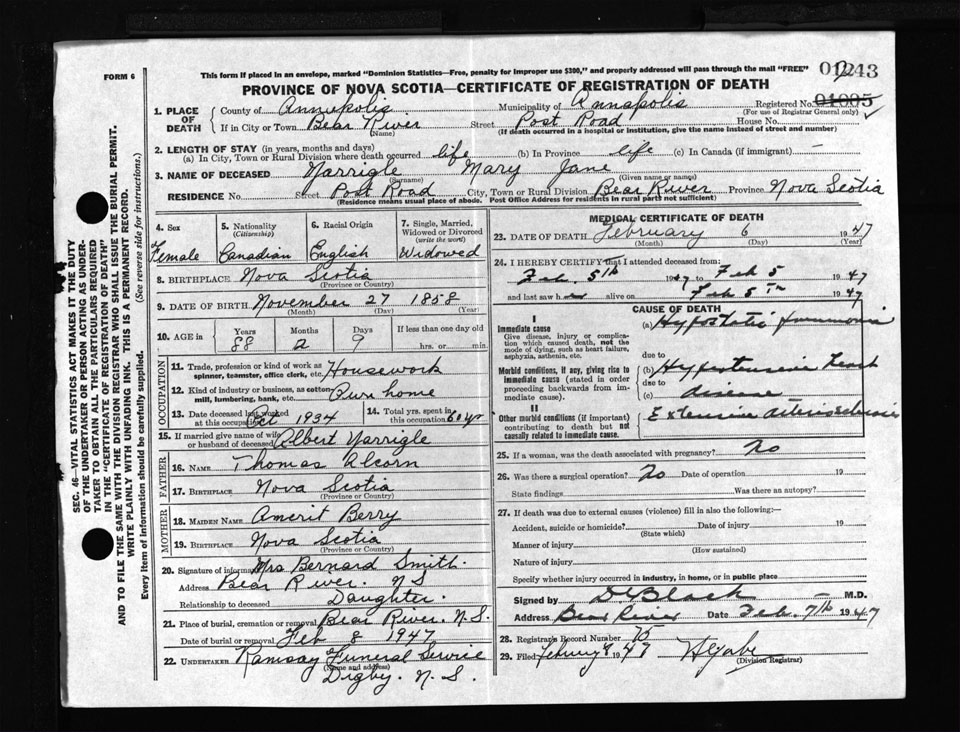 FORM 6
This form if placed in an envelope, marked "Dominion Statistics—Free, penalty for improper use $300," and properly addressed will pass through the mail "FREE"
PROVINCE OF NOVA SCOTIA—CERTIFICATE OF REGISTRATION OF DEATH
1. PLACE OF DEATH County of Annapolis Municipality of Annapolis Registered No. 01005
(For use of Registrar General only)
If in City or Town Bear River Street Post Road House No.
(Name) (If death occurred in a hospital or institution, give the name instead of street and number)
2. LENGTH OF STAY (in years, months and days)
(a) In City, Town or Rural Division where death occurred life (b) In Province life (c) In Canada (if immigrant) —
3. NAME OF DECEASED Mary Jane
(Surname) (Given name or names)
RESIDENCE No. Street Post Road City, Town or Rural Division Bear River Province Nova Scotia
(Residence means usual place of abode. Post Office Address for residents in rural parts not sufficient)
4. Sex 5. Nationality (Citizenship) 6. Racial Origin 7. Single, Married, Widowed or Divorced (write the word)
Female Canadian English Widowed
8. BIRTHPLACE Nova Scotia
(Province or Country)
9. DATE OF BIRTH November 27 1858
(Month) (Day) (Year)
10. AGE in Years Months Days If less than one day old
88 2 9 hrs. or min.
OCCUPATION
11. Trade, profession or kind of work as spinner, teamster, office clerk, etc. Housework
12. Kind of industry or business, as cotton mill, lumbering, bank, etc. Own home
13. Date deceased last worked at this occupation Oct 1934 14. Total yrs. spent in this occupation 60 yr
15. If married give name of wife or husband of deceased Albert
FATHER
16. NAME Thomas Alcorn
17. BIRTHPLACE Nova Scotia
(Province or Country)
MOTHER
18. MAIDEN NAME Berry
19. BIRTHPLACE Nova Scotia
(Province or Country)
20. Signature of informant Mrs Bernard Smith.
Address Bear River. N S
Relationship to deceased Daughter.
21. Place of burial, cremation or removal Bear River. N.S.
Date of burial or removal Feb 8 1947
22. UNDERTAKER Ramsay Funeral Service
(Name and address)
Digby. N. S.
MEDICAL CERTIFICATE OF DEATH
23. DATE OF DEATH February 6 1947
(Month) (Day) (Year)
24. I HEREBY CERTIFY that I attended deceased from:
Feb. 5th 1947 to Feb 5 1947
and last saw her alive on Feb 5th 1947
CAUSE OF DEATH
I
Immediate cause (a) Hypostatic pneumonia
Give disease, injury or complication which caused death, not the mode of dying, such as heart failure, asphyxia, asthenia, etc.
due to
Morbid conditions, if any, giving rise to immediate cause (stated in order proceeding backwards from immediate cause). (b) Hypertensive heart
due to
(c) disease
II
Other morbid conditions (if important) contributing to death but not causally related to immediate cause. Extensive arteriosclerosis
25. If a woman, was the death associated with pregnancy? No
26. Was there a surgical operation? No Date of operation 19
State findings Was there an autopsy?
27. If death was due to external causes (violence) fill in also the following:—
Accident, suicide or homicide? Date of injury 19
(State which)
Manner of injury
(How sustained)
Nature of injury
Specify whether injury occurred in industry, in home, or in public place
Signed by Black M.D.
Address Bear River Date Feb. 7th 1947
28. Registrar's Record Number
29. Filed February 1947
(Division Registrar)
SEC. 46—VITAL STATISTICS ACT MAKES IT THE DUTY
OF THE UNDERTAKER OR PERSON ACTING AS UNDER-
TAKER TO OBTAIN ALL THE PARTICULARS REQUIRED
IN THE "CERTIFICATE OF REGISTRATION OF DEATH"
AND TO FILE THE SAME WITH THE DIVISION REGISTRAR WHO SHALL ISSUE THE BURIAL PERMIT.
WRITE PLAINLY WITH UNFADING INK. THIS IS A PERMANENT RECORD.
Every item of information should be carefully supplied. (See reverse side for instructions.)